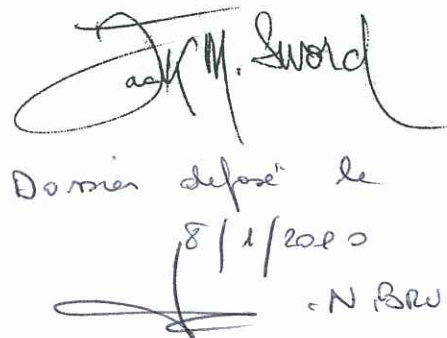 Jack M. Sword
Dossier déposé le
8/1/2020
.N.BRU